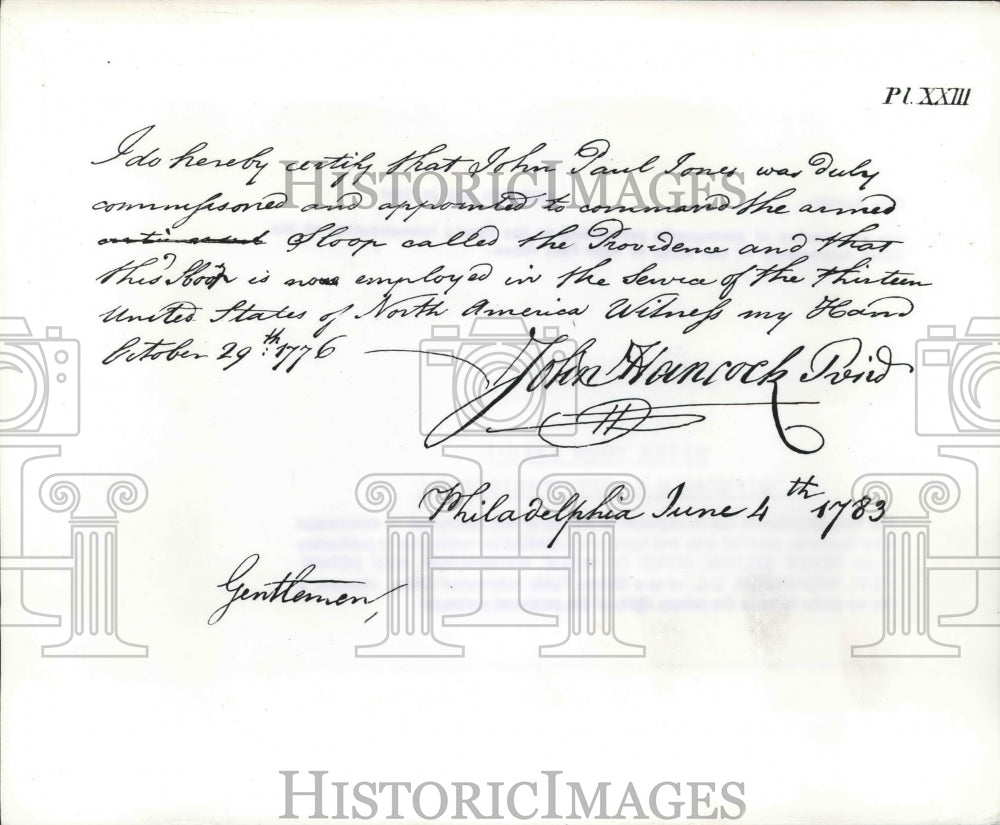 Pl. XXIII
I do hereby certify that John Paul Jones was duly
commissioned and appointed to command the armed
Sloop called the Providence and that
this Sloop is now employed in the Service of the thirteen
United States of North America Witness my Hand
October 29th: 1776
John Hancock Presid
Philadelphia June 4th 1783
Gentlemen,
HISTORICIMAGES
HISTORICIMAGES